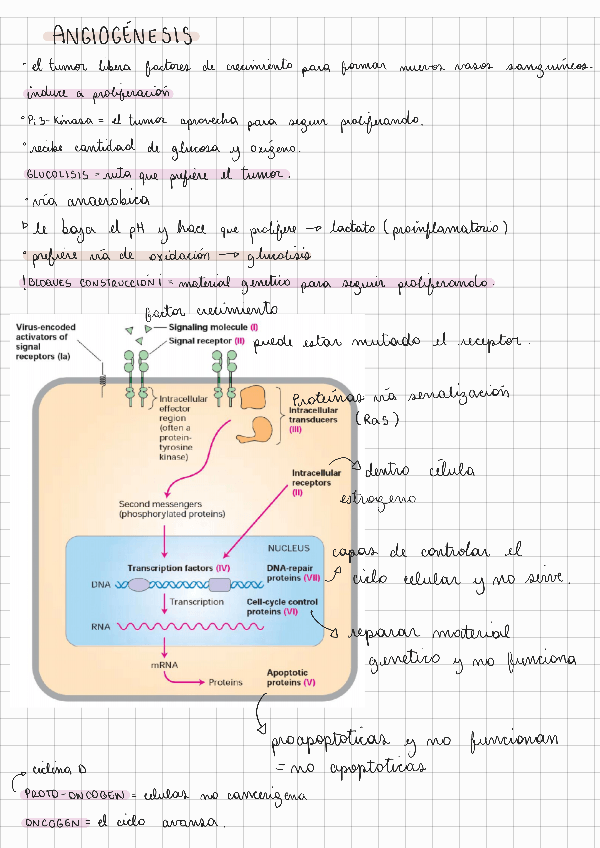 ANGIOGÉNESIS
· el tumor libera factores de crecimiento para formar nuevos vasos sanguíneos.
induce a proliferación
° Pi3-Kinasa = el tumor aprovecha para seguir proliferando.
° recibe cantidad de glucosa y oxígeno.
GLUCOLISIS = ruta que prefiere el tumor.
· vía anaerobica
le bajar el pH y hace que prolifere → lactato (proinflamatorio)
° prefiere vía de oxidación → glucolisis
! BLOQUES CONSTRUCCIÓN! = material genetico para seguir proliferando.
factor crecimiento
Virus-encoded
activators of
signal
receptors (Ia)
Signaling molecule (I)
Signal receptor (II) puede estar mutado el receptor.
Intracellular
effector
region
(often a
protein-
tyrosine
kinase)
Proteínas vía senalización
(Ras)
Intracellular
transducers
(III)
Intracellular
receptors
(II)
dentro célula
estrogeno
Second messengers
(phosphorylated proteins)
NUCLEUS
Transcription factors (IV)
DNA
DNA-repair
proteins (VII)
capas de controlar el
ciclo celular y no sirve.
Transcription
Cell-cycle control
proteins (VI)
RNA
reparar material
genetico y no funciona
mRNA
Proteins
Apoptotic
proteins (V)
proapoptoticas y no funcionan
= no apoptoticas
ciclina D
PROTO-ONCOGEN = celulas no cancerigena
ONCOGEN = el ciclo avanza.